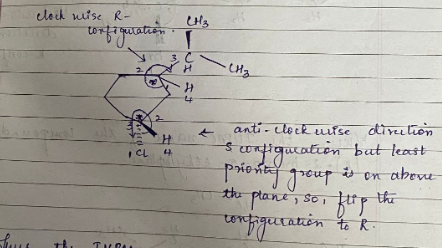 clock wise R-
configuration.
CH3
3
C
H
CH3
2
1
H
4
2
H
4
1
Cl
← anti-clock wise direction
S configuration but least
priority group is on above
the plane, so, flip the
configuration to R.